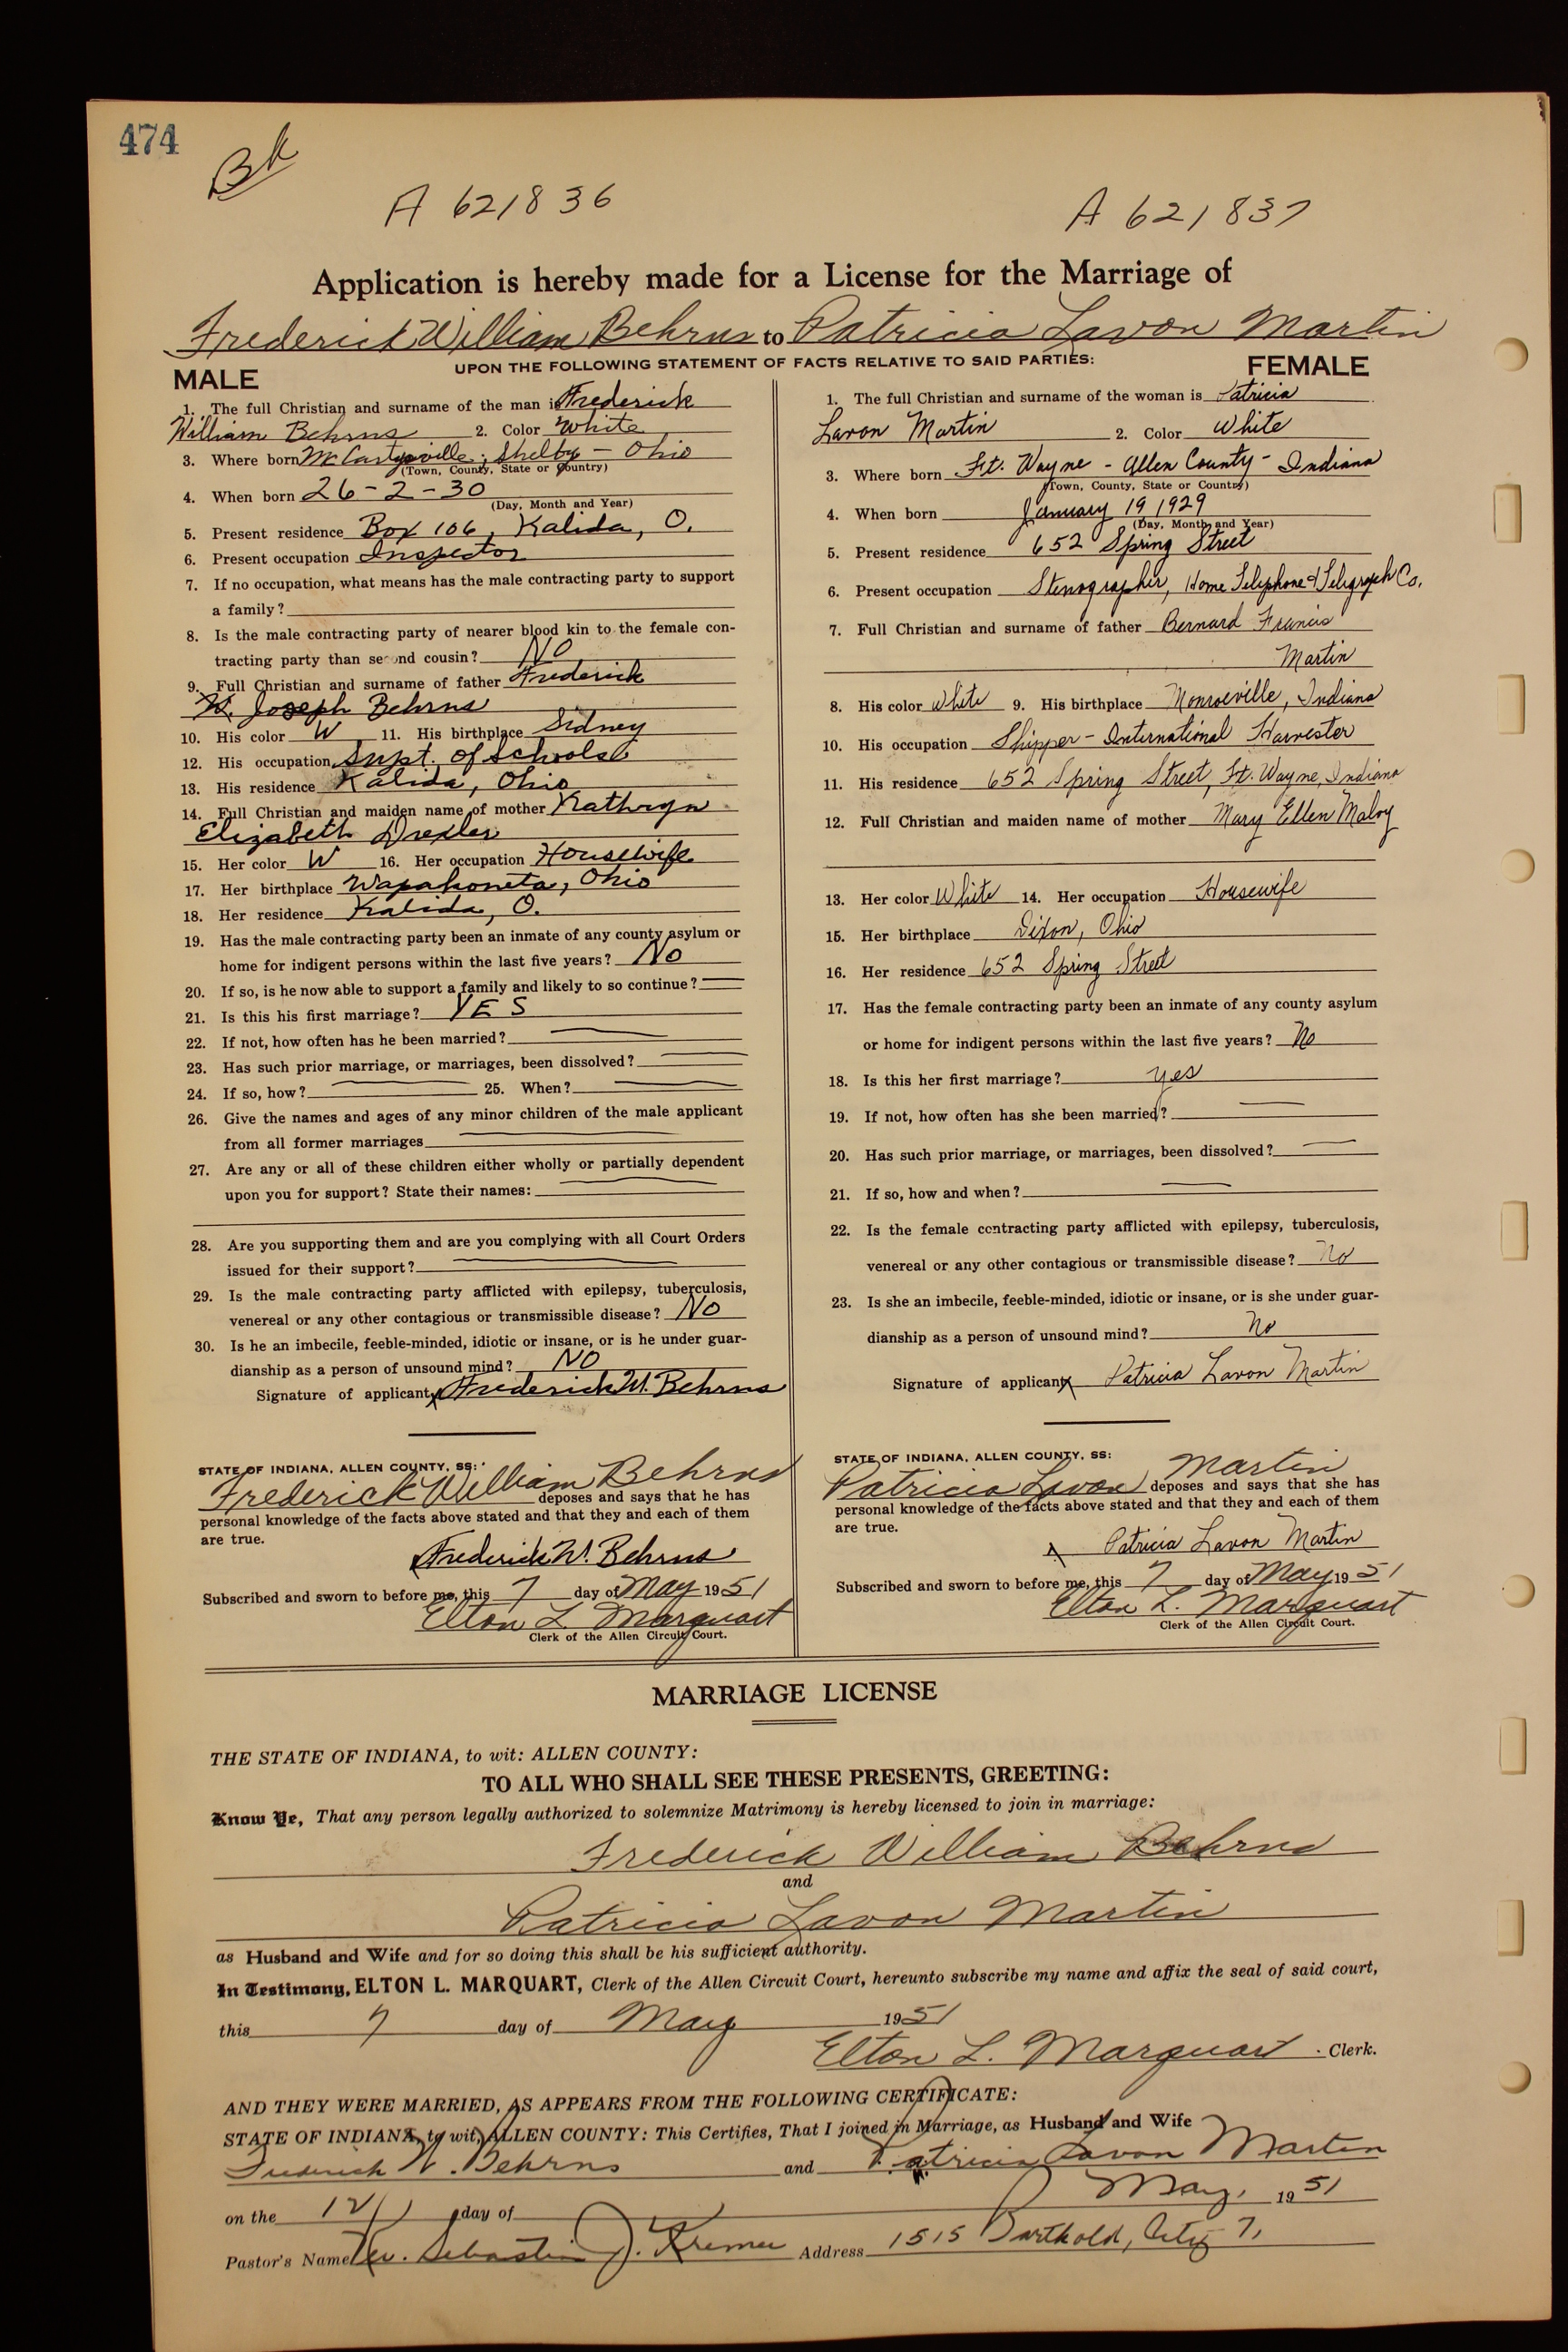 474
Bk
A 621836
A 621837
Application is hereby made for a License for the Marriage of
Frederick William Behrns to Patricia Lavon Martin
UPON THE FOLLOWING STATEMENT OF FACTS RELATIVE TO SAID PARTIES:
MALE
1. The full Christian and surname of the man is Frederick
William Behrns 2. Color White
3. Where born McCartyville, Shelby - Ohio
(Town, County, State or Country)
4. When born 26-2-30
(Day, Month and Year)
5. Present residence Box 106, Kalida, O.
6. Present occupation Inspector
7. If no occupation, what means has the male contracting party to support
a family?
8. Is the male contracting party of nearer blood kin to the female con-
tracting party than second cousin? NO
9. Full Christian and surname of father Frederick
Joseph Behrns
10. His color W 11. His birthplace Sidney
12. His occupation Supt. of Schools
13. His residence Kalida, Ohio
14. Full Christian and maiden name of mother Kathryn
Elizabeth Drexler
15. Her color W 16. Her occupation Housewife
17. Her birthplace Wapakoneta, Ohio
18. Her residence Kalida, O.
19. Has the male contracting party been an inmate of any county asylum or
home for indigent persons within the last five years? No
20. If so, is he now able to support a family and likely to so continue? —
21. Is this his first marriage? YES
22. If not, how often has he been married? —
23. Has such prior marriage, or marriages, been dissolved? —
24. If so, how? — 25. When? —
26. Give the names and ages of any minor children of the male applicant
from all former marriages —
27. Are any or all of these children either wholly or partially dependent
upon you for support? State their names: —
28. Are you supporting them and are you complying with all Court Orders
issued for their support? —
29. Is the male contracting party afflicted with epilepsy, tuberculosis,
venereal or any other contagious or transmissible disease? NO
30. Is he an imbecile, feeble-minded, idiotic or insane, or is he under guar-
dianship as a person of unsound mind? NO
Signature of applicant x Frederick W. Behrns
STATE OF INDIANA, ALLEN COUNTY, SS:
Frederick William Behrns deposes and says that he has
personal knowledge of the facts above stated and that they and each of them
are true.
x Frederick W. Behrns
Subscribed and sworn to before me, this 7 day of May 1951
Elton L. Marquart
Clerk of the Allen Circuit Court.
FEMALE
1. The full Christian and surname of the woman is Patricia
Lavon Martin 2. Color White
3. Where born Ft. Wayne - Allen County - Indiana
(Town, County, State or Country)
4. When born January 19 1929
(Day, Month and Year)
5. Present residence 652 Spring Street
6. Present occupation Stenographer, Home Telephone & Telegraph Co.
7. Full Christian and surname of father Bernard Francis
Martin
8. His color White 9. His birthplace Monroeville, Indiana
10. His occupation Shipper - International Harvester
11. His residence 652 Spring Street, Ft. Wayne, Indiana
12. Full Christian and maiden name of mother Mary Ellen Maloy
13. Her color White 14. Her occupation Housewife
15. Her birthplace Dixon, Ohio
16. Her residence 652 Spring Street
17. Has the female contracting party been an inmate of any county asylum
or home for indigent persons within the last five years? No
18. Is this her first marriage? yes
19. If not, how often has she been married? —
20. Has such prior marriage, or marriages, been dissolved? —
21. If so, how and when? —
22. Is the female contracting party afflicted with epilepsy, tuberculosis,
venereal or any other contagious or transmissible disease? No
23. Is she an imbecile, feeble-minded, idiotic or insane, or is she under guar-
dianship as a person of unsound mind? No
Signature of applicant x Patricia Lavon Martin
STATE OF INDIANA, ALLEN COUNTY, SS:
Patricia Lavon Martin deposes and says that she has
personal knowledge of the facts above stated and that they and each of them
are true.
x Patricia Lavon Martin
Subscribed and sworn to before me, this 7 day of May 1951
Elton L. Marquart
Clerk of the Allen Circuit Court.
MARRIAGE LICENSE
THE STATE OF INDIANA, to wit: ALLEN COUNTY:
TO ALL WHO SHALL SEE THESE PRESENTS, GREETING:
Know Ye, That any person legally authorized to solemnize Matrimony is hereby licensed to join in marriage:
Frederick William Behrns
and
Patricia Lavon Martin
as Husband and Wife and for so doing this shall be his sufficient authority.
In Testimony, ELTON L. MARQUART, Clerk of the Allen Circuit Court, hereunto subscribe my name and affix the seal of said court,
this 7 day of May 1951
Elton L. Marquart. Clerk.
AND THEY WERE MARRIED, AS APPEARS FROM THE FOLLOWING CERTIFICATE:
STATE OF INDIANA, to wit, ALLEN COUNTY: This Certifies, That I joined in Marriage, as Husband and Wife
Frederick W. Behrns and Patricia Lavon Martin
on the 12 day of May, 1951
Pastor's Name Rev. Sebastian J. Kremer Address 1515 Barthold, City 7,